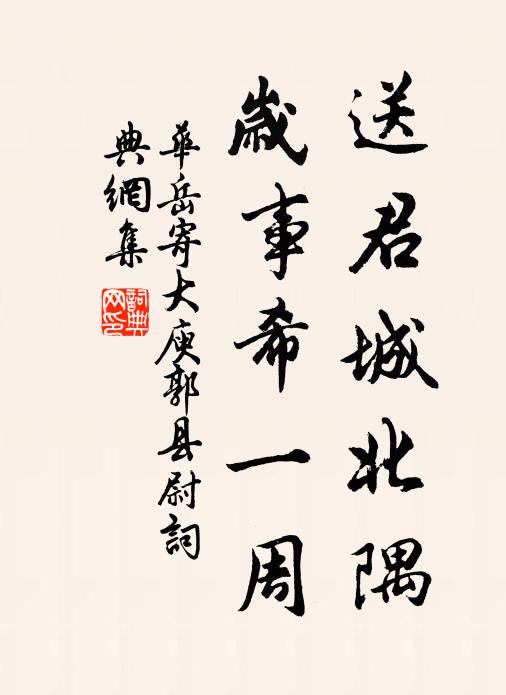 送君城北隅
歲事希一周
華岳寄大庾郭县尉詞
典網集
詞典網印